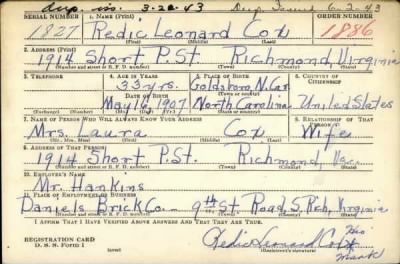 dup. iss. 3-22-43 Dup. Issued 6-2-43
SERIAL NUMBER 1. NAME (Print) ORDER NUMBER
1827 Redic Leonard Cox 1886
(First) (Middle) (Last)
2. ADDRESS (Print)
1914 Short P. St. Richmond, Virginia
(Number and street or R. F. D. number) (Town) (County) (State)
3. TELEPHONE 4. AGE IN YEARS 5. PLACE OF BIRTH 6. COUNTRY OF CITIZENSHIP
33 yrs. Goldsboro N. Car.
DATE OF BIRTH (Town or county)
May 16, 1907 North Carolina United States
(Exchange) (Number) (Mo.) (Day) (Yr.) (State or country)
7. NAME OF PERSON WHO WILL ALWAYS KNOW YOUR ADDRESS 8. RELATIONSHIP OF THAT PERSON
Mrs. Laura Cox Wife
(Mr., Mrs., Miss) (First) (Middle) (Last)
9. ADDRESS OF THAT PERSON
1914 Short P. St. Richmond, Va.
(Number and street or R. F. D. number) (Town) (County) (State)
10. EMPLOYER'S NAME
Mr. Hankins
11. PLACE OF EMPLOYMENT OR BUSINESS
Daniels Brick Co. 9th St Road, S. Rich, Virginia
(Number and street or R. F. D. number) (Town) (County) (State)
I AFFIRM THAT I HAVE VERIFIED ABOVE ANSWERS AND THAT THEY ARE TRUE.
REGISTRATION CARD
D. S. S. FORM 1 (over)
Redic Leonard Cox X His
Mark
(Registrant's signature)